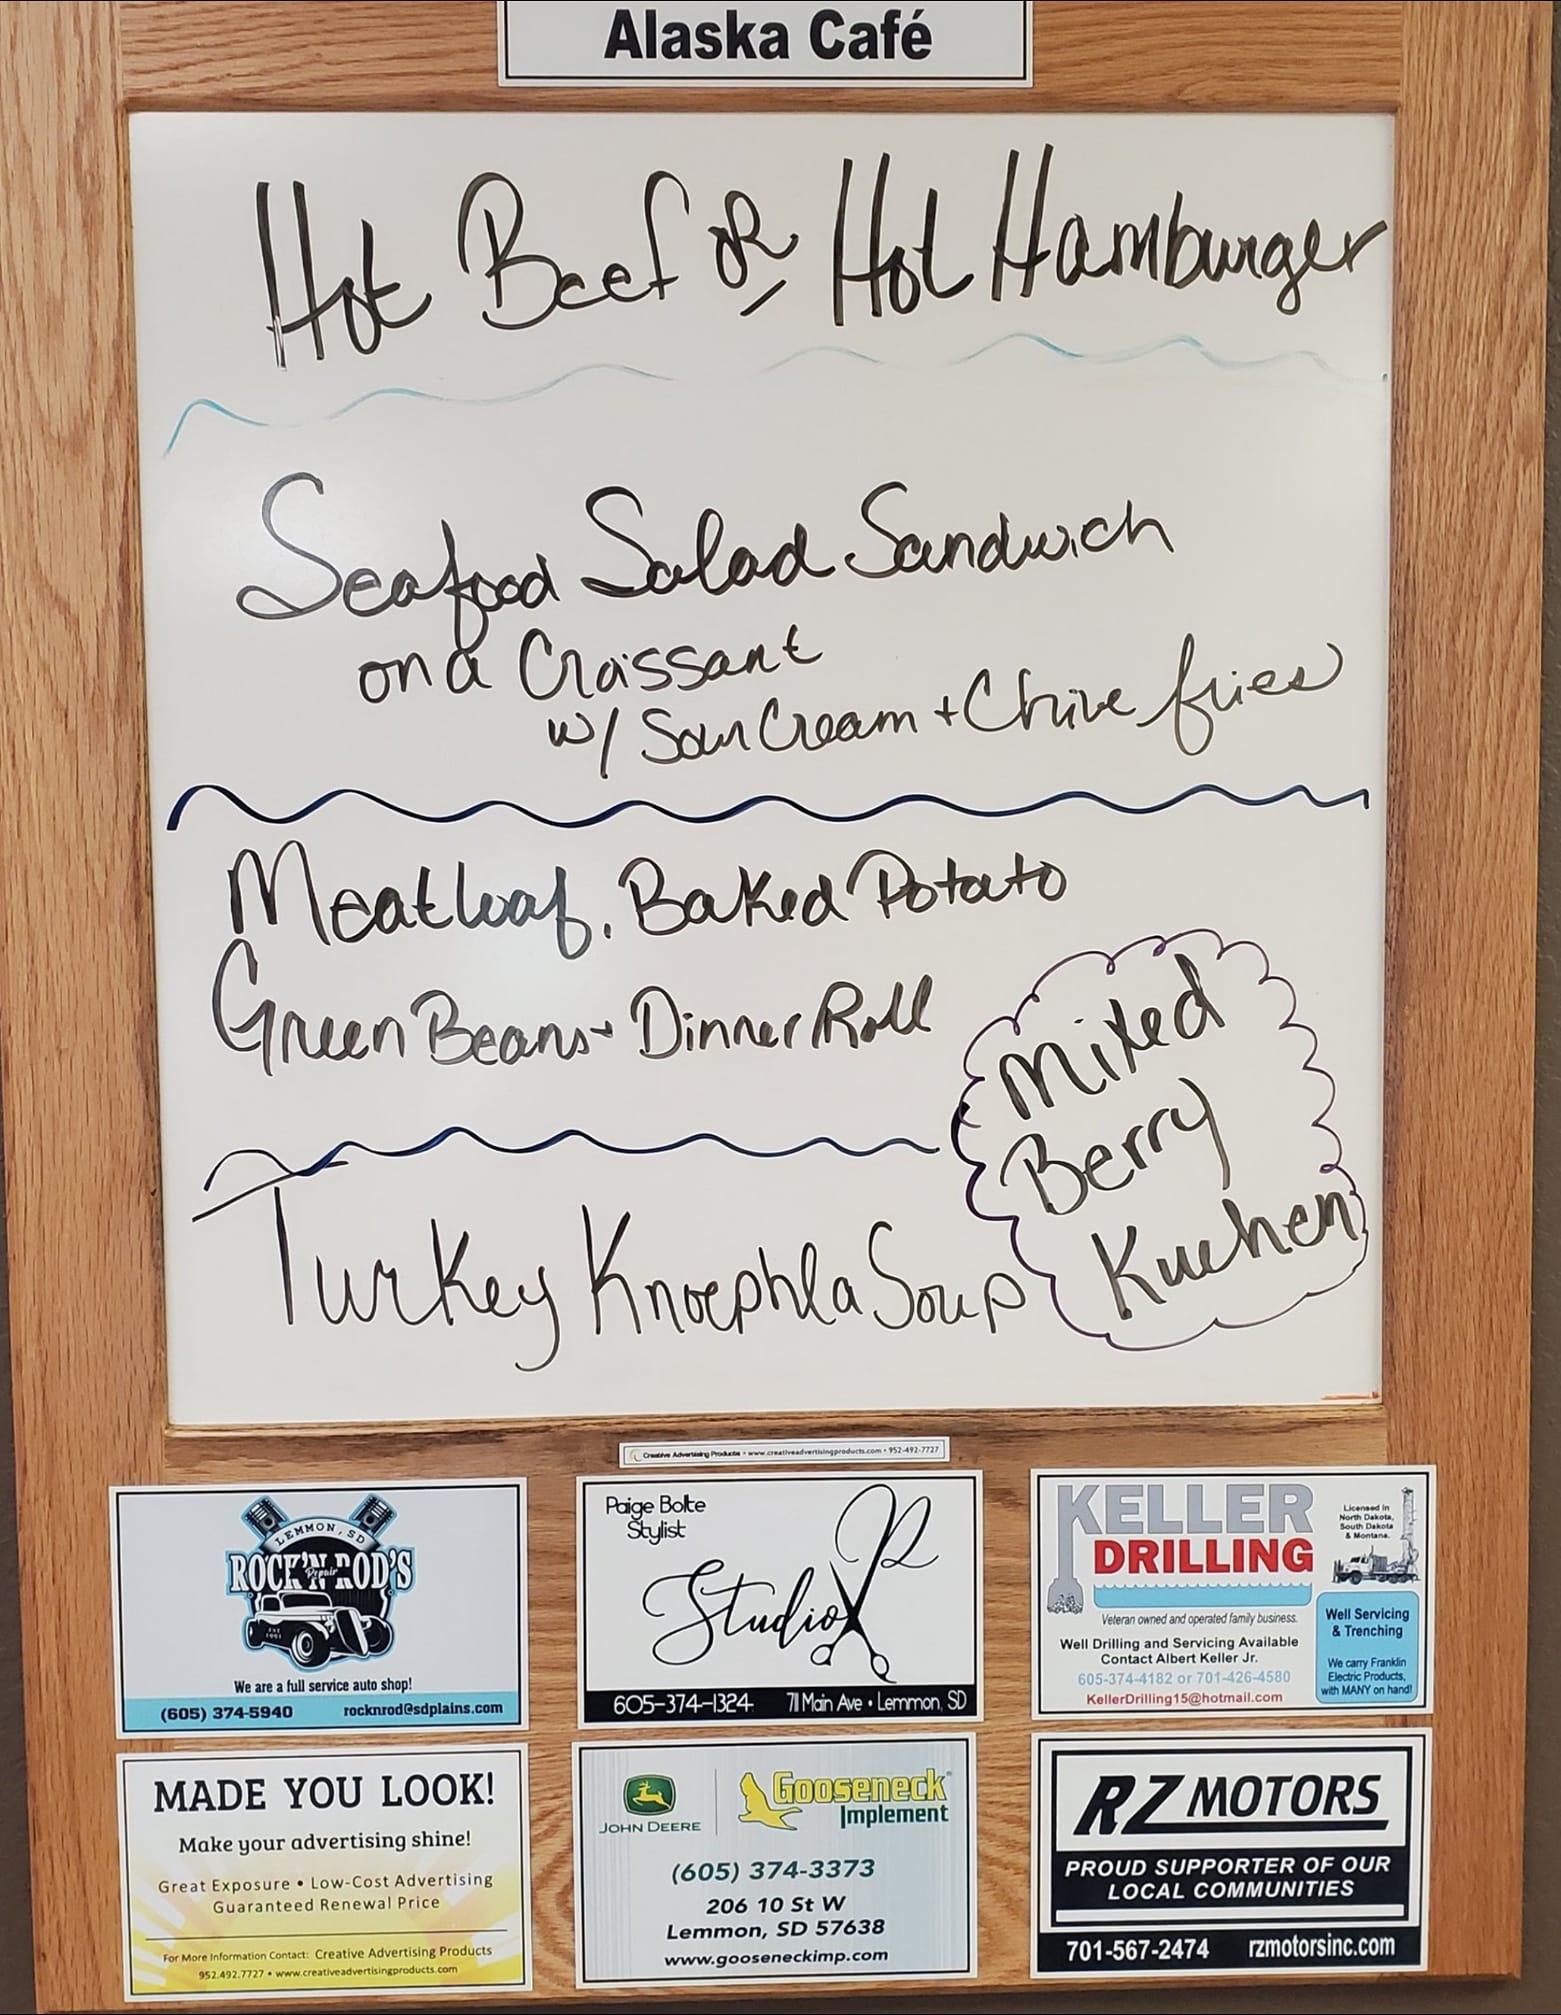 Alaska Café
Hot Beef OR Hot Hamburger
Seafood Salad Sandwich
on a Croissant
w/ Sour Cream + Chive fries
Meatloaf, Baked Potato
Green Beans + Dinner Roll
Mixed
Berry
Kuchen
Turkey Knoephla Soup
Creative Advertising Products • www.creativeadvertisingproducts.com • 952-492-7727
LEMMON, SD
ROCK'N ROD'S
Repair
We are a full service auto shop!
(605) 374-5940 rocknrod@sdplains.com
Paige Bolte
Stylist
Studio
605-374-1324 711 Main Ave • Lemmon, SD
KELLER
DRILLING
Licensed in
North Dakota,
South Dakota
& Montana.
Veteran owned and operated family business.
Well Drilling and Servicing Available
Contact Albert Keller Jr.
605-374-4182 or 701-426-4580
KellerDrilling15@hotmail.com
Well Servicing
& Trenching
We carry Franklin
Electric Products,
with MANY on hand!
MADE YOU LOOK!
Make your advertising shine!
Great Exposure • Low-Cost Advertising
Guaranteed Renewal Price
For More Information Contact: Creative Advertising Products
952.492.7727 • www.creativeadvertisingproducts.com
JOHN DEERE
Gooseneck
Implement
(605) 374-3373
206 10 St W
Lemmon, SD 57638
www.gooseneckimp.com
RZ MOTORS
PROUD SUPPORTER OF OUR
LOCAL COMMUNITIES
701-567-2474 rzmotorsinc.com